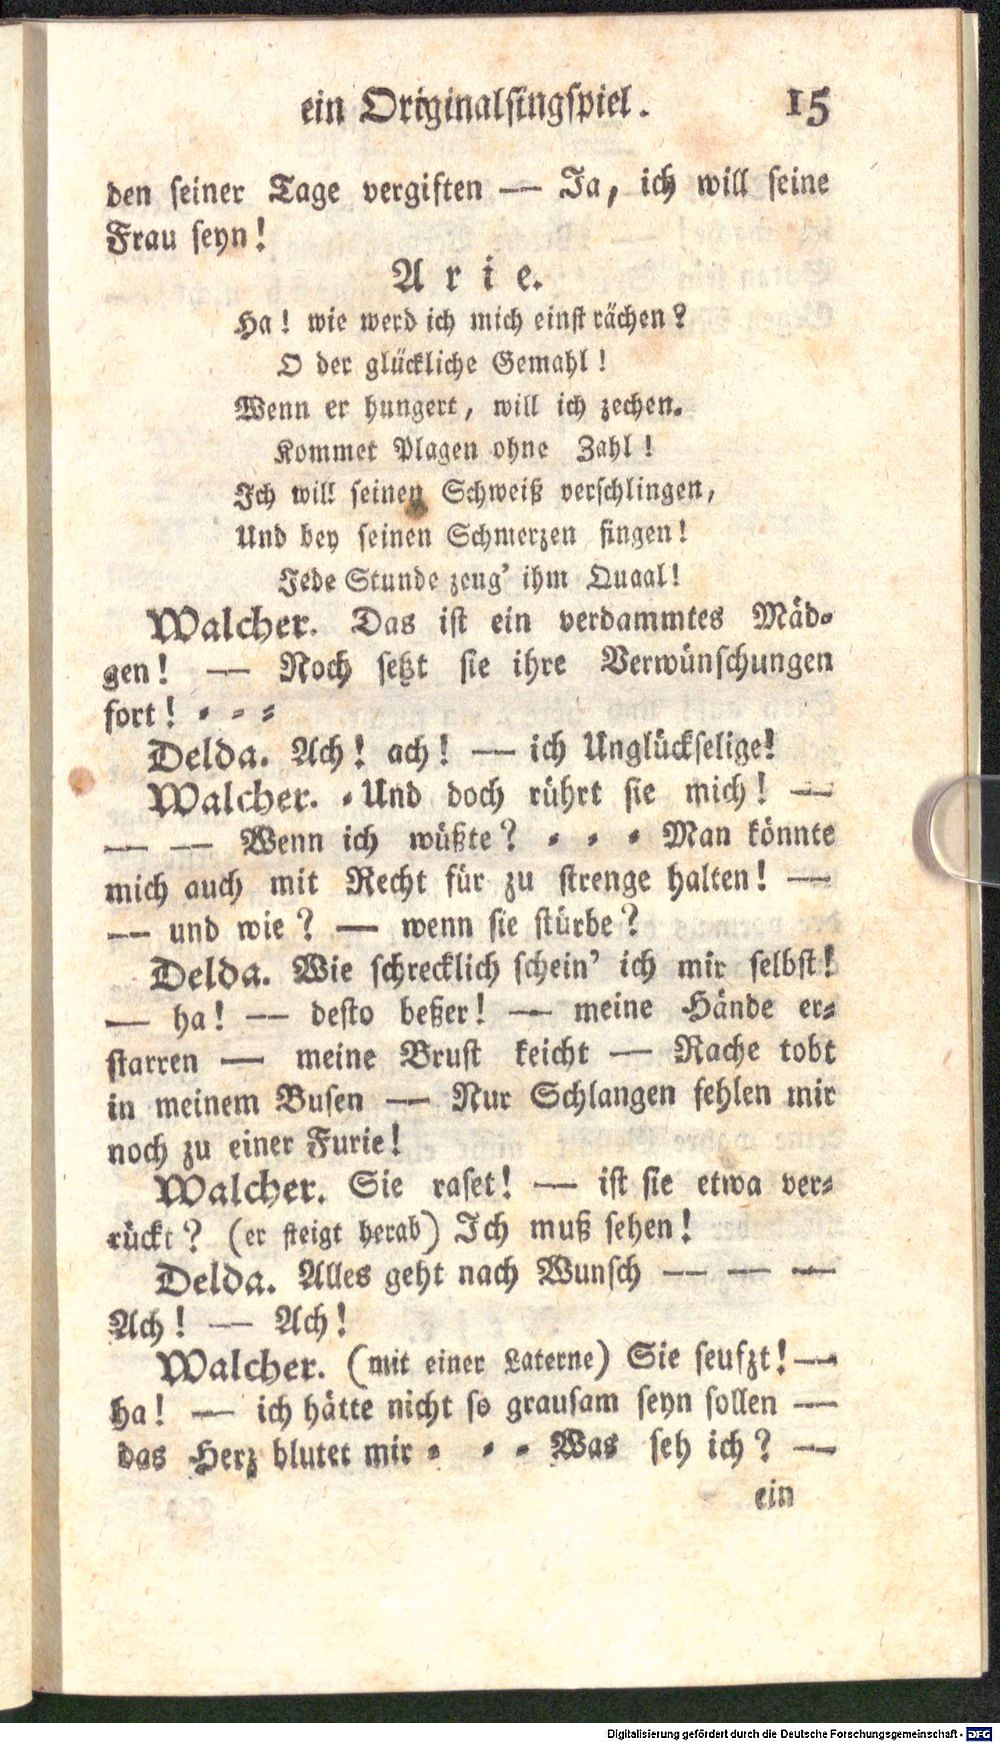 ein Originalsingspiel. 15
den seiner Tage vergiften — Ja, ich will seine
Frau seyn!
Arie.
Ha! wie werd ich mich einst rächen?
O der glückliche Gemahl!
Wenn er hungert, will ich zechen.
Kommet Plagen ohne Zahl!
Ich will seinen Schweiß verschlingen,
Und bey seinen Schmerzen singen!
Jede Stunde zeug' ihm Quaal!
Walcher. Das ist ein verdammtes Mäd-
gen! — Noch setzt sie ihre Verwünschungen
fort! - - -
Delda. Ach! ach! — ich Unglückselige!
Walcher. - Und doch rührt sie mich! —
— — Wenn ich wüßte? - - - Man könnte
mich auch mit Recht für zu strenge halten! —
— und wie? — wenn sie stürbe?
Delda. Wie schrecklich schein' ich mir selbst!
— ha! — desto beßer! — meine Hände er-
starren — meine Brust keicht — Rache tobt
in meinem Busen — Nur Schlangen fehlen mir
noch zu einer Furie!
Walcher. Sie raset! — ist sie etwa ver-
rückt? (er steigt herab) Ich muß sehen!
Delda. Alles geht nach Wunsch — — —
Ach! — Ach!
Walcher. (mit einer Laterne) Sie seufzt! —
ha! — ich hätte nicht so grausam seyn sollen —
das Herz blutet mir - - - Was seh ich? —
ein
Digitalisierung gefördert durch die Deutsche Forschungsgemeinschaft - DFG